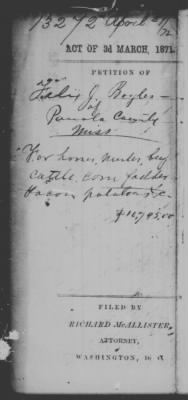 13272 April
ACT OF 3d MARCH, 1871.
PETITION OF
J. Bogles
of
Panola County
Miss
For horses, mules, hay
cattle, corn, fodder
bacon, potatoes &c
$16,745.00
FILED BY
RICHARD McALLISTER,
ATTORNEY,
WASHINGTON,